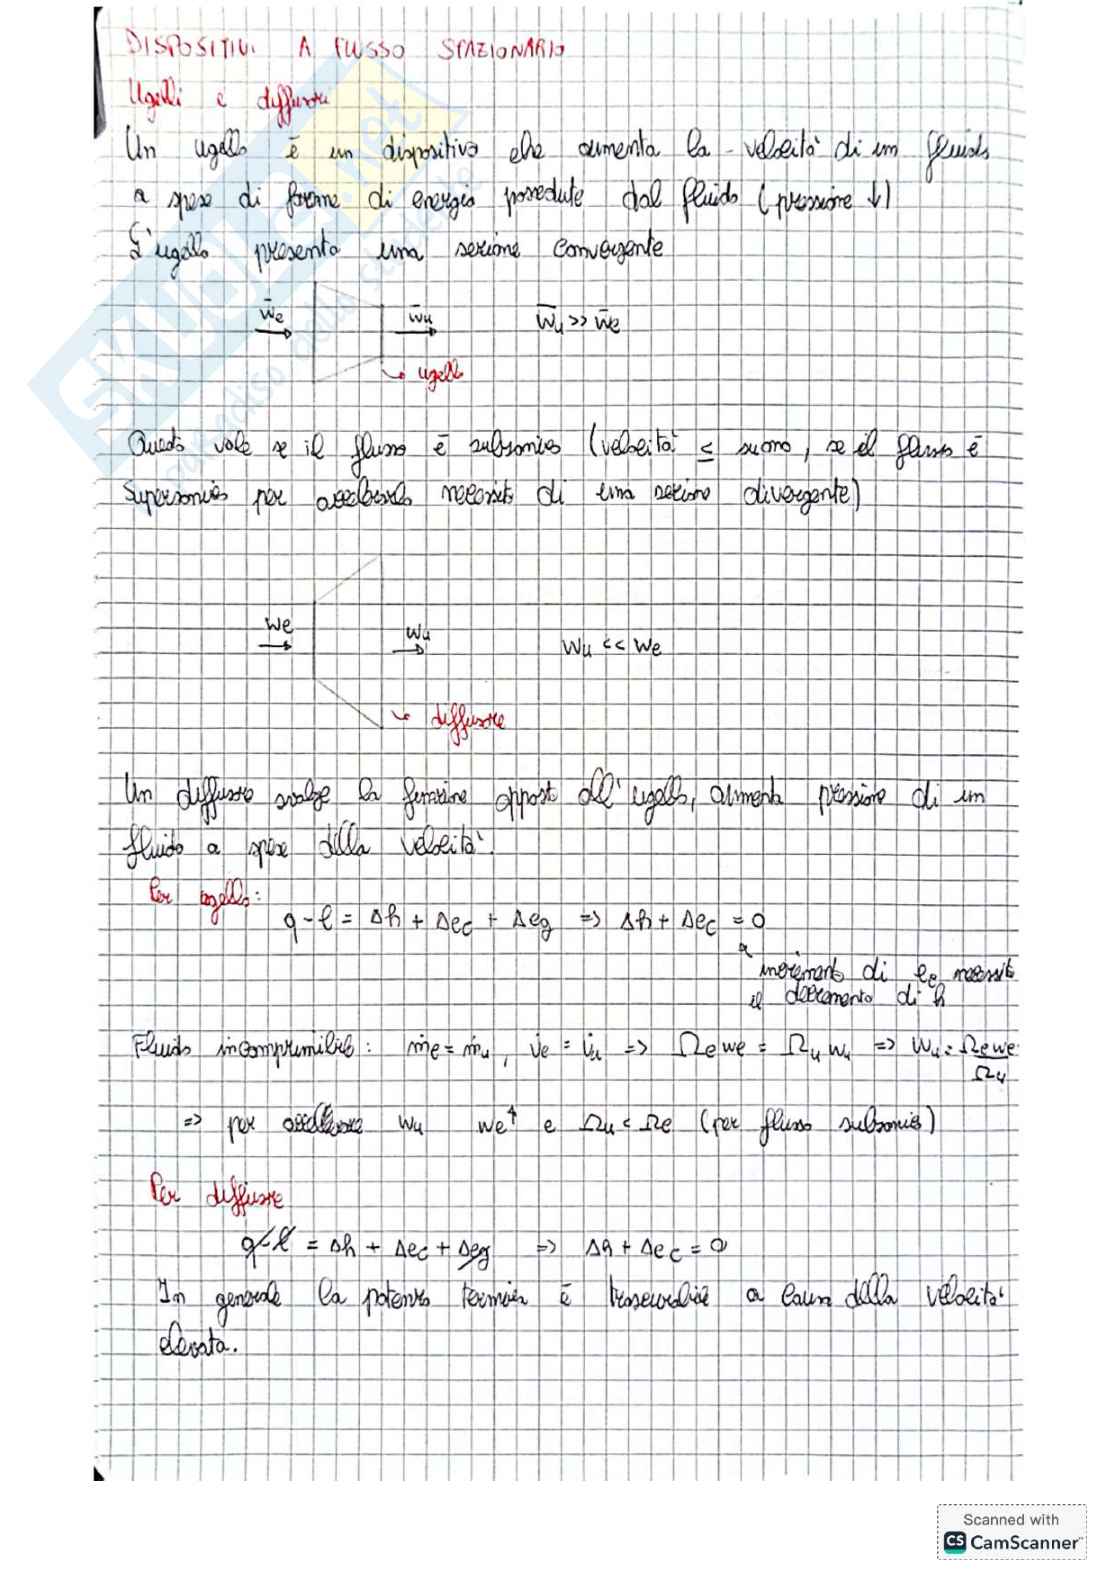 DISPOSITIVI A FLUSSO STAZIONARIO
Ugelli e diffusori
Un ugello è un dispositivo che aumenta la velocità di un fluido
a spese di forme di energia possedute dal fluido (pressione ↓)
L'ugello presenta una sezione convergente
w̄e w̄u w̄u >> w̄e
→ ugello
Questo vale se il flusso è subsonico (velocità ≤ suono, se il flusso è
supersonico per accelerarlo necessito di una sezione divergente)
we wu wu << we
→ diffusore
Un diffusore svolge la funzione opposta all'ugello, aumenta pressione di un
fluido a spese della velocità.
Per ugello:
q - l = Δh + Δec + Δeg => Δh + Δec = 0
incremento di ec necessita
il decremento di h
Fluido incomprimibile: ṁe = ṁu, V̇e = V̇u => Ωe we = Ωu wu => wu = Ωe we / Ωu
=> per accelerare wu we↑ e Ωu < Ωe (per flusso subsonico)
Per diffusore
q - l = Δh + Δec + Δeg => Δh + Δec = 0
In generale la potenza termica è trascurabile a causa della velocità
elevata.
SKUOLA.net
paradiso dello studente
Scanned with
CS CamScanner